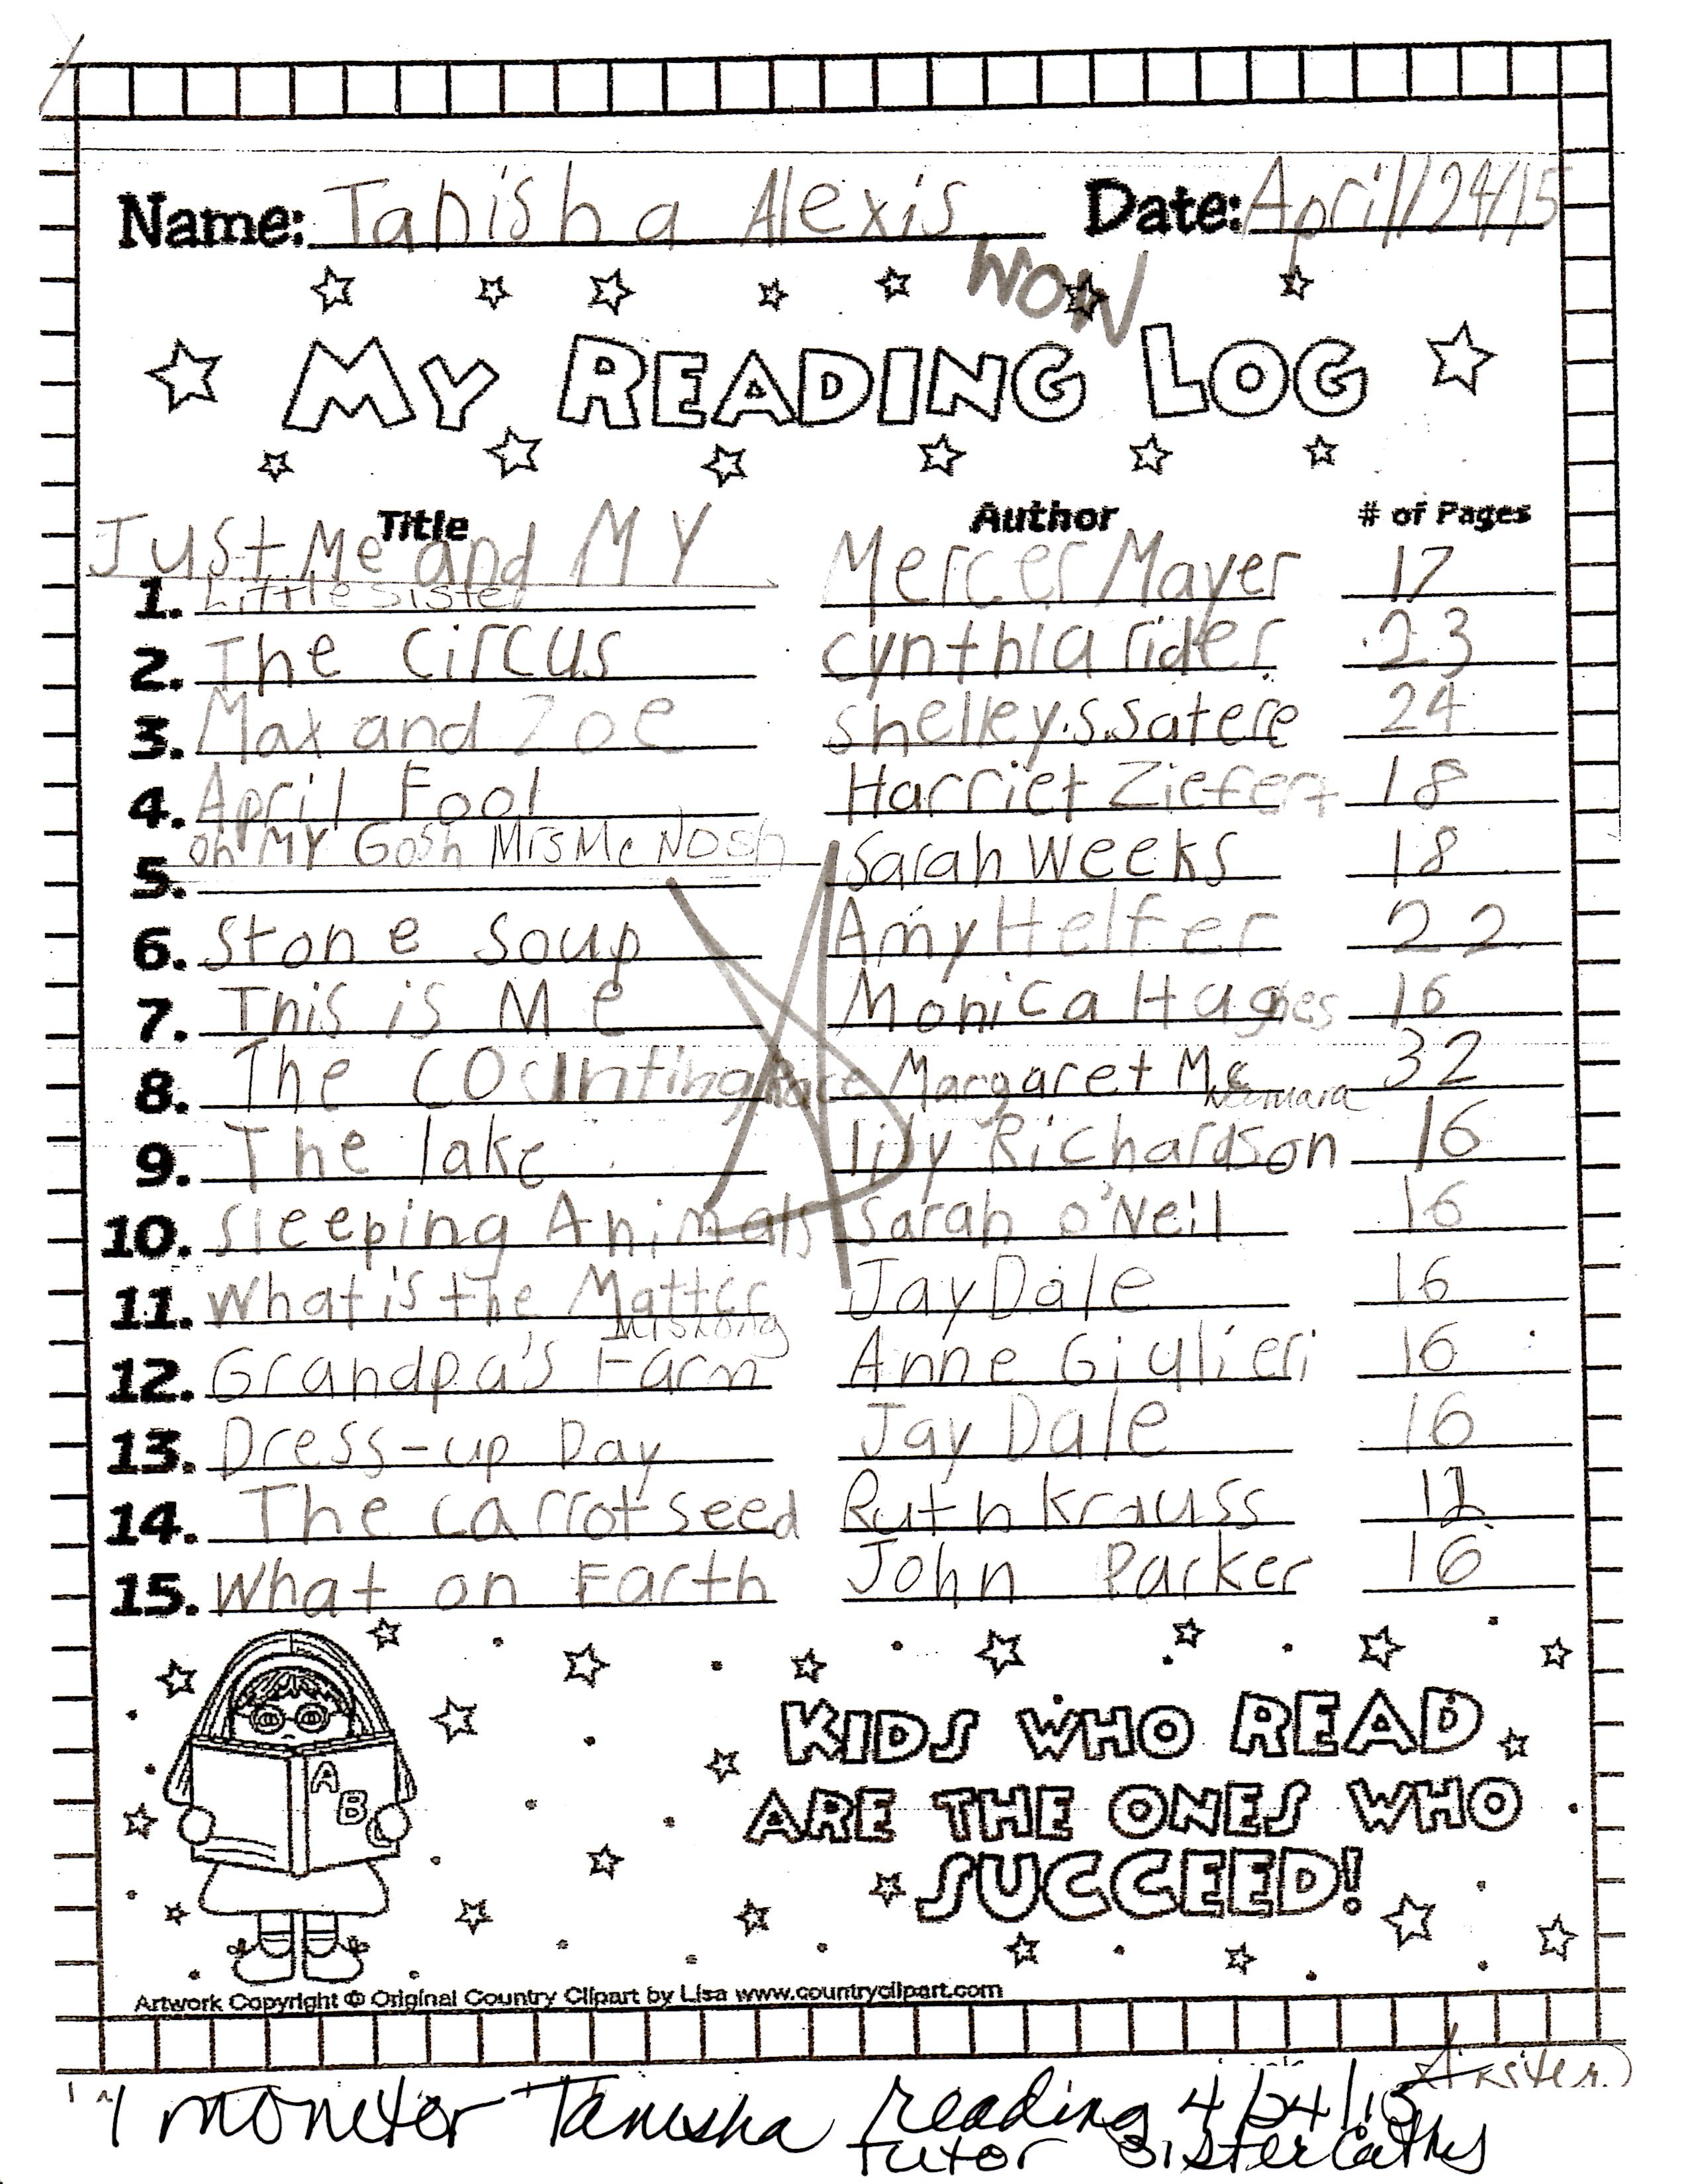 Name: Tanisha Alexis Date: April/24/15
WOW
MY READING LOG
Title Author # of Pages
Just Me and MY
1. Little Sister Mercer Mayer 17
2. The circus cynthia rider 23
3. Max and Zoe shelley.s.satere 24
4. April Fool Harriet Ziefert 18
5. oh MY Gosh Mrs Mc Nosh Sarah Weeks 18
6. Stone Soup Amy Helfer 22
7. This is Me Monica Hughes 16
8. The Counting Race Margaret Mc 32
9. The lake lily Richardson 16
10. Sleeping Animals Sarah o'Neil 16
11. What is the Matter Jay Dale 16
12. Grandpa's Farm Anne Giulieri 16
13. Dress-up Day Jay Dale 16
14. The carrot seed Ruth krauss 12
15. What on Earth John Parker 16
A
B
C
KIDS WHO READ
ARE THE ONES WHO
SUCCEED!
Artwork Copyright © Original Country Clipart by Lisa www.countryclipart.com
I moniter Tanisha reading 4/24/15
tutor Sister Cathy